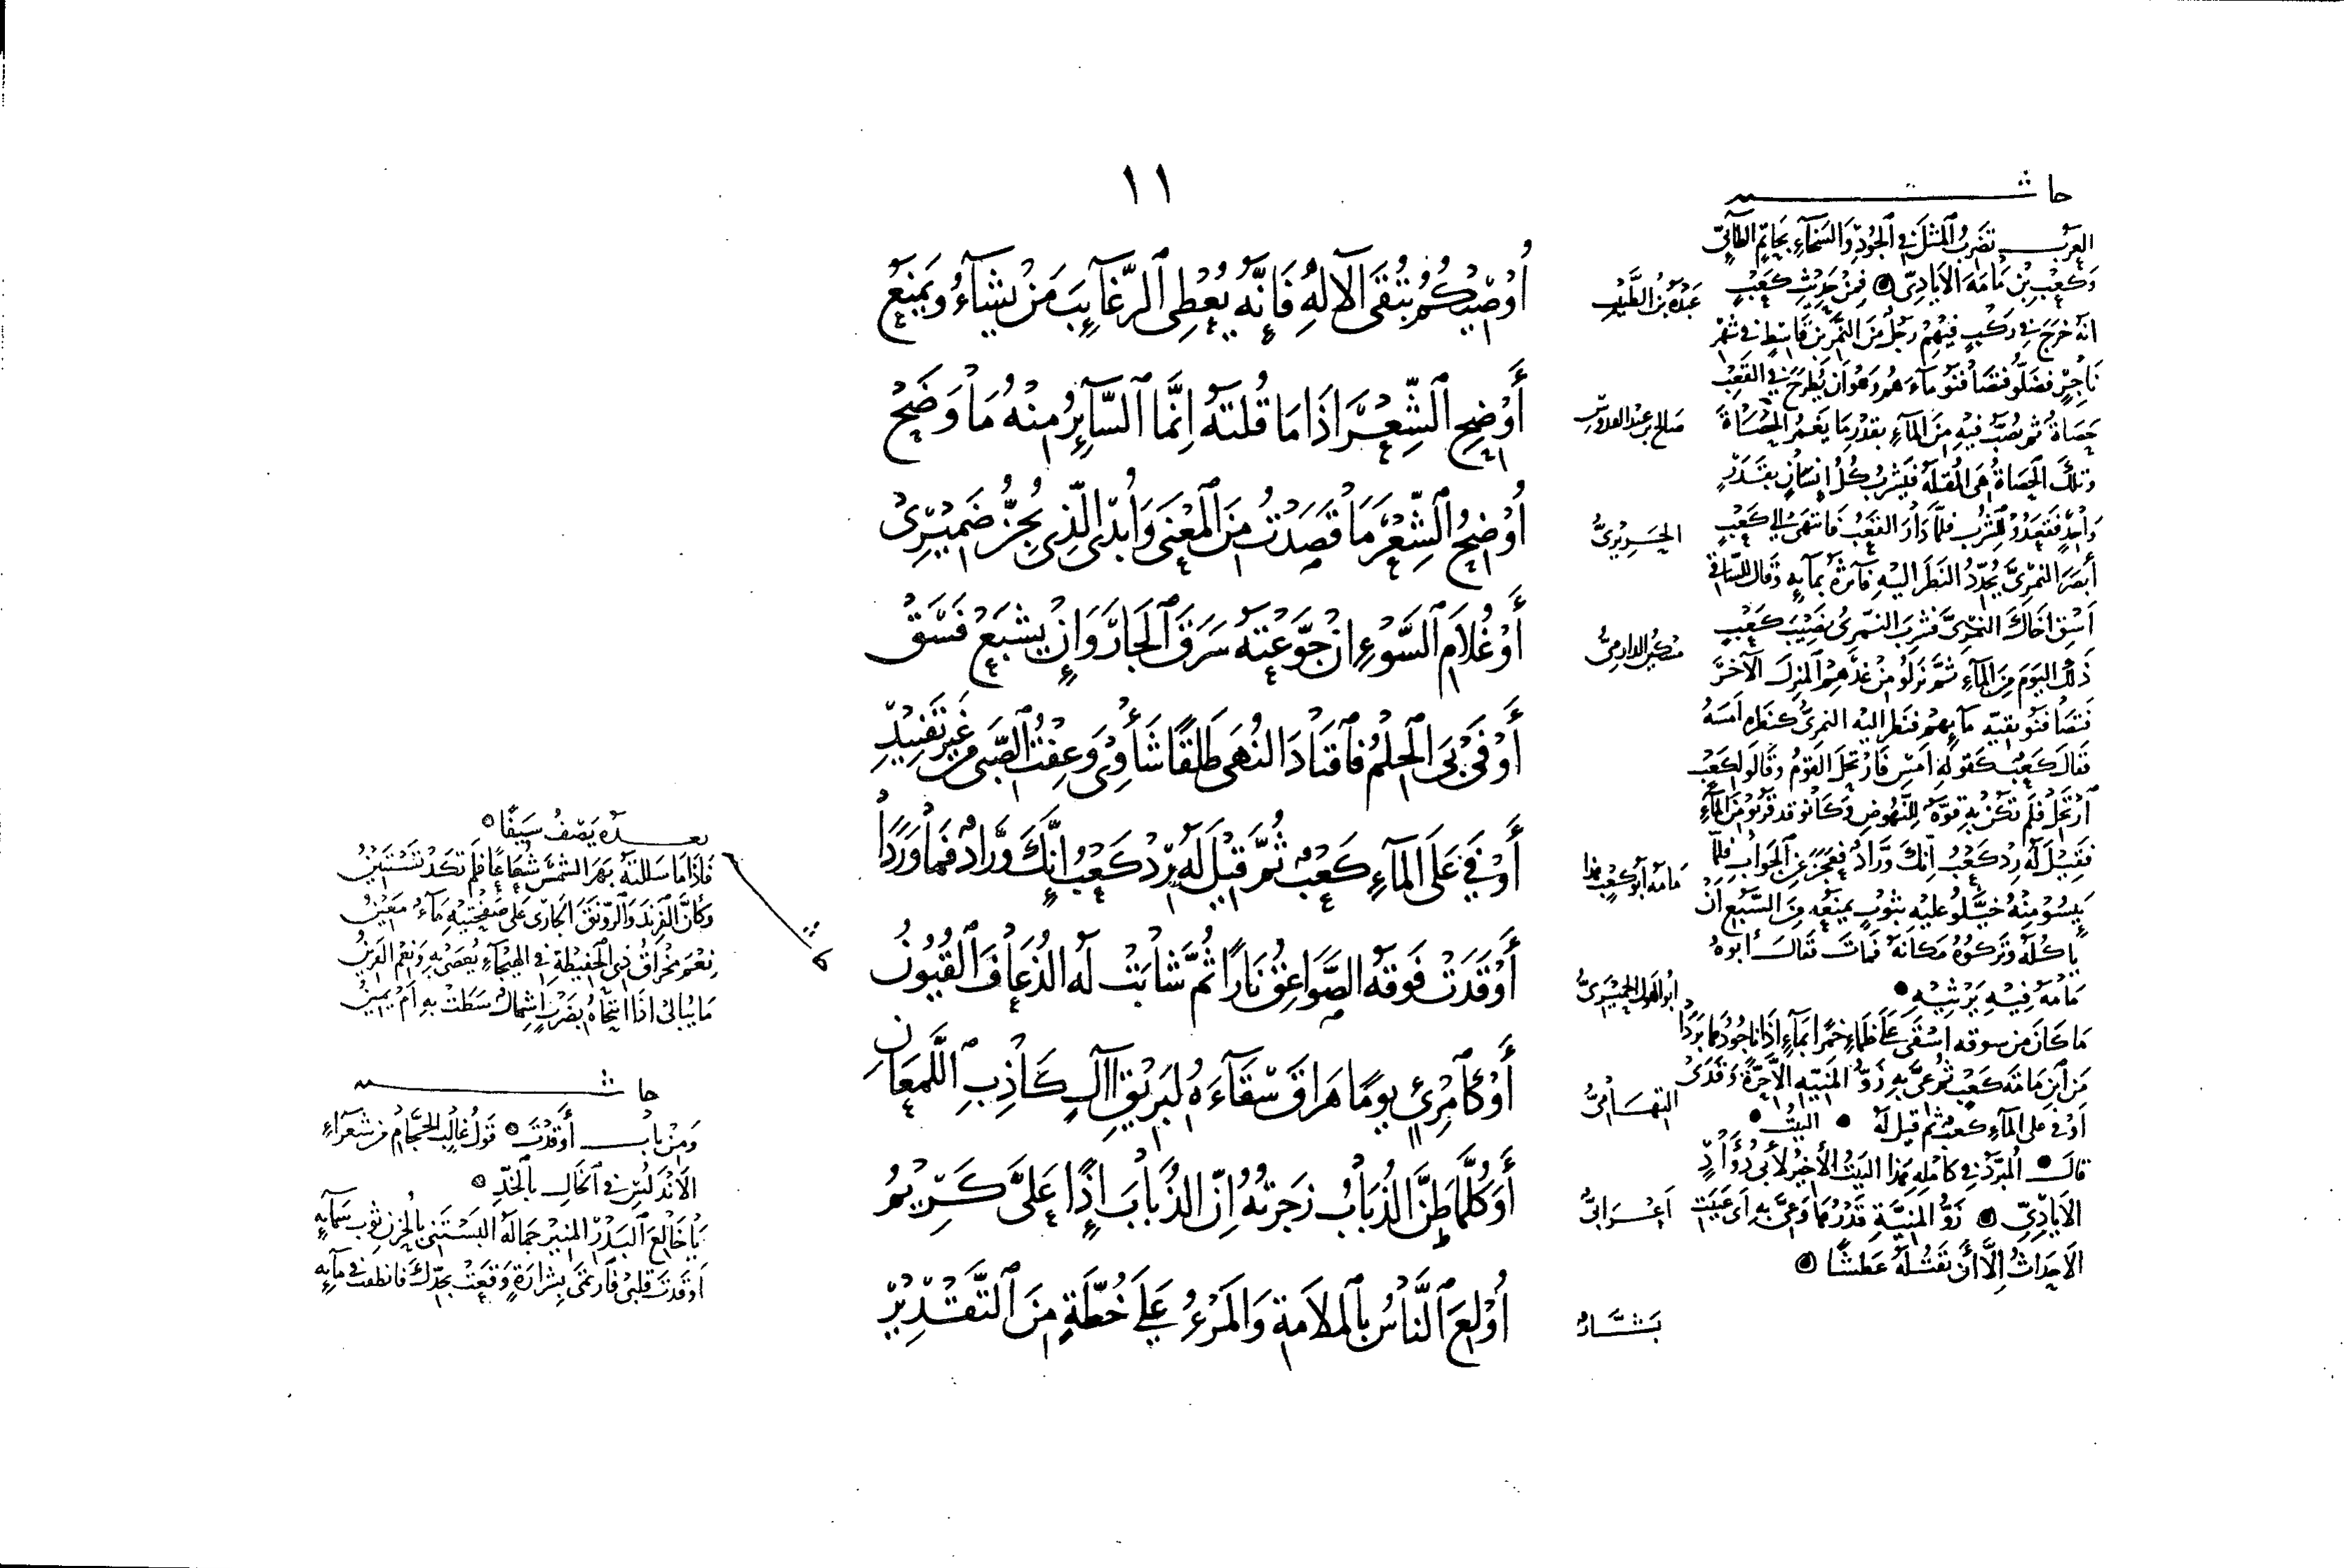 ١١
أُوصِيكُمُ بِتُقَى الْإِلَهِ فَإِنَّهُ يُعْطِي الرَّغَائِبَ مَنْ يَشَاءُ وَيَمْنَعُ
أَوْضِحِ الشِّعْرَ إِذَا مَا قُلْتَهُ إِنَّمَا السَّائِرُ مِنْهُ مَا وَضَحْ
أُوضِحُ الشِّعْرَ مَا قَصَدْتُ مِنَ الْمَعْنَى وَأُبْدِي الَّذِي يُجِنُّ ضَمِيرِي
أَوْ غُلَامِ السَّوْءِ إِنْ جَوَّعْتَهُ سَرَقَ الْجَارَ وَإِنْ يَشْبَعْ فَسَقْ
أَوْفَى بِيَ الْحِلْمُ فَاقْتَادَ النُّهَى طَلَقًا شَأْوِي وَعِفْتُ الصِّبَى مِنْ غَيْرِ تَفْنِيدِ
أَوْفَى عَلَى الْمَاءِ كَعْبٌ ثُمَّ قِيلَ لَهُ رِدْ كَعْبُ إِنَّكَ وَرَّادٌ فَمَا وَرَدَا
أَوْقَدَتْ فَوْقَهُ الصَّوَاعِقُ نَارًا ثُمَّ شَابَتْ لَهُ الذُّعَافَ الْقُيُونُ
أَوْ كَامْرِئٍ يَوْمًا هَرَاقَ سِقَاءَهُ لِبَرِيقِ آلٍ كَاذِبِ اللَّمَعَانِ
أَوَ كُلَّمَا طَنَّ الذُّبَابُ زَجَرْتُهُ إِنَّ الذُّبَابَ إِذًا عَلَيَّ كَرِيمُ
أُولِعَ النَّاسُ بِالْمَلَامَةِ وَالْمَرْءُ عَلَى خُطَّةٍ مِنَ التَّقْدِيرْ
عَبْدَةُ بْنُ الطَّبِيبِ
صالح بن عبد القدوس
الحَرِيرِيُّ
مسكين الدارمي
مامه أبو كعب هذا
أبو الهول الحميري
التِّهَامِيُّ
أَعْرَابِيٌّ
بَشَّارٌ
حاشية
العرب تضرب المثل في الجود والسخاء بحاتم الطائي
وكعب بن مامة الايادي فمن حديث كعب
انه خرج في ركب فيهم رجل من النمر بن قاسط في شهر
ناجر فضلّو فتصافنو ماءهم وهو أن يطرح في القعب
حصاة ثم يصب فيه من الماء بقدر ما يغمر الحصاة
وتلك الحصاة هي المقلة فيشرب كل إنسان بقدر
واحد فقعدو للشرب فلما دار القعب فانتهى إلى كعب
أبصر النمري يحدد النظر اليه فآثره بمائه وقال للساقي
اسق اخاك النمري فشرب النمري نصيب كعب
ذلك اليوم من الماء ثم نزلو من غدهم المنزل الآخر
فتصافنو بقية مائهم فنظر اليه النمري كنظره امسه
فقال كعب كقوله امس فارتحل القوم وقالو لكعب
ارتحل فلم تكن به قوة للنهوض وكانو قد قربو من الماء
فقيل له رد كعب إنك وراد فعجز عن الجواب فلما
يئسو منه خيلو عليه بثوب يمنعه من السبع أن
ياكله وتركوه مكانه فمات فقال أبوه
مامة فيه يرثيه
ما كان من سوقة اسقى على ظماء خمرا بماء إذا ناجودها بردا
من ابن مامة كعب ثم عي به زو المنية الا حرة وقدى
اوفى على الماء كعب ثم قيل له البيت
قال المبرد في كامله هذا البيت الاخير لأبي دؤاد
الايادي زو المنية قدرها وعي به اى عييت
الاحداث إلا أن تقتله عطشا
بعده يصف سيفا
فإذا ما سللته بهر الشمس شعاعا فلم تكد تستبين
وكأن الفرند والرونق الجاري على صفحتيه ماء معين
نعم مخراق ذي الحفيظة في الهيجاء يعصى به ونعم القرين
ما يبالي اذا انتحاه بضرب اشمال سطت به أم يمين
حاشية
ومن باب أوقدت قول غالب الحجام من شعراء
الاندلس في الخال بالخد
يا خالع البدر المنير جماله البستني بالحزن ثوب سمائه
اوقدت قلبي فارتمى بشرارة وقعت بخدك فانطفت في مائه